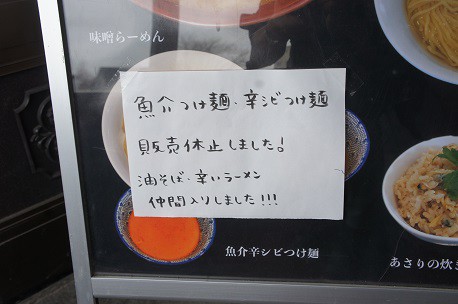 味噌らーめん
魚介つけ麺・辛シビつけ麺
販売休止しました!
油そば・辛いラーメン
仲間入りしました!!!
魚介辛シビつけ麺
あさりの炊き